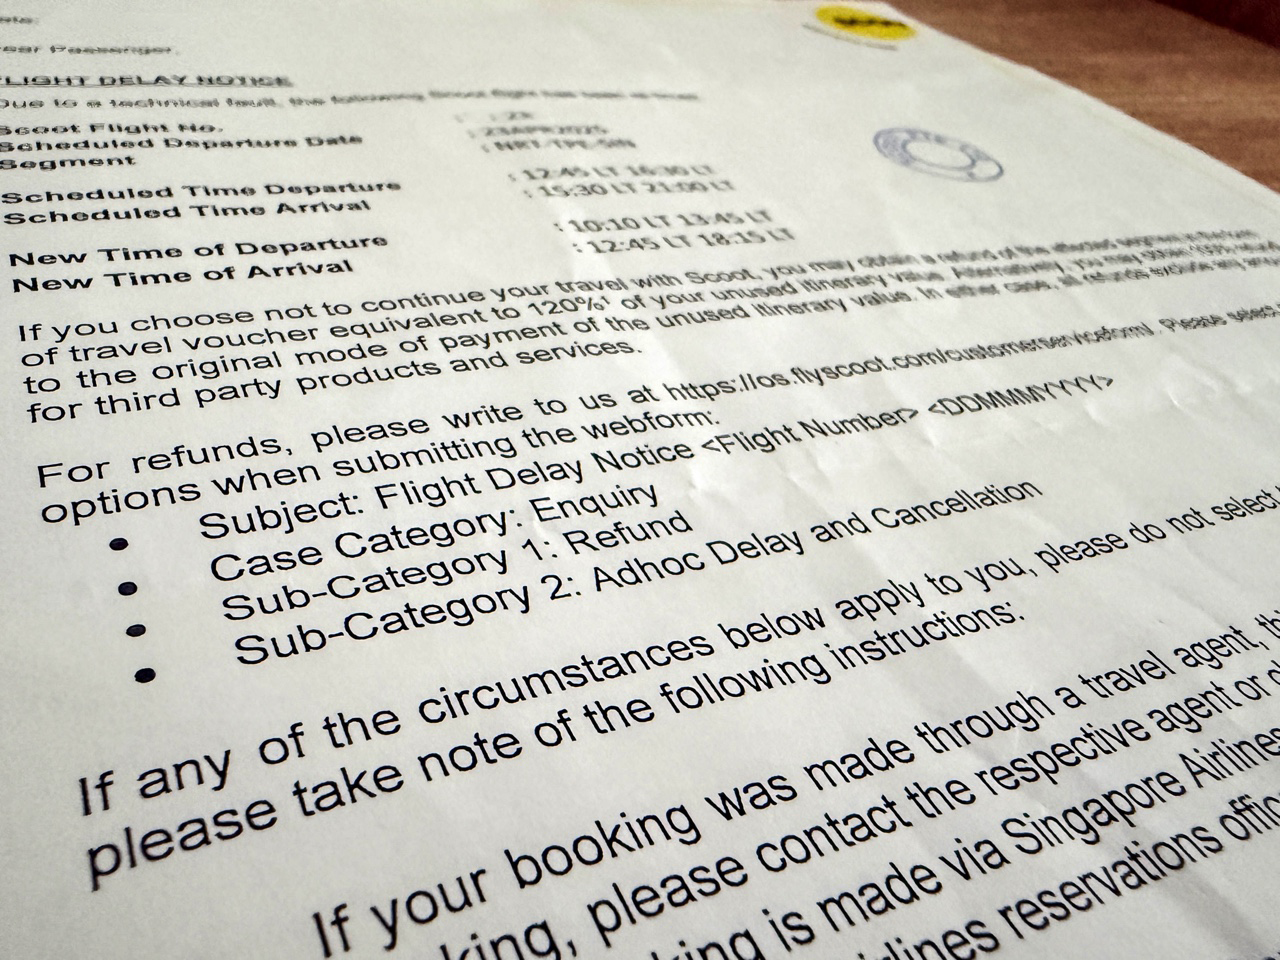 FLIGHT DELAY NOTICE
Due to a technical fault, the following Scoot flight has been
Scoot Flight No.
Scheduled Departure Date : 23APR2025
Segment : NRT-TPE-SIN
Scheduled Time Departure : 12:45 LT 16:30 LT
Scheduled Time Arrival : 15:30 LT 21:00 LT
New Time of Departure : 10:10 LT 13:45 LT
New Time of Arrival : 12:45 LT 18:15 LT
If you choose not to continue your travel with Scoot, you may obtain a refund of the affected segment in the form
of travel voucher equivalent to 120%¹ of your unused itinerary value. Alternatively, you may obtain 100% refund
to the original mode of payment of the unused itinerary value. In either case, all refunds exclude any
for third party products and services.
For refunds, please write to us at https://os.flyscoot.com/customerserviceform/. Please select
options when submitting the webform:
• Subject: Flight Delay Notice <Flight Number> <DDMMMYYYY>
• Case Category: Enquiry
• Sub-Category 1: Refund
• Sub-Category 2: Adhoc Delay and Cancellation
If any of the circumstances below apply to you, please do not select
please take note of the following instructions:
If your booking was made through a travel agent,
king, please contact the respective agent or
king is made via Singapore Airlines
rlines reservations